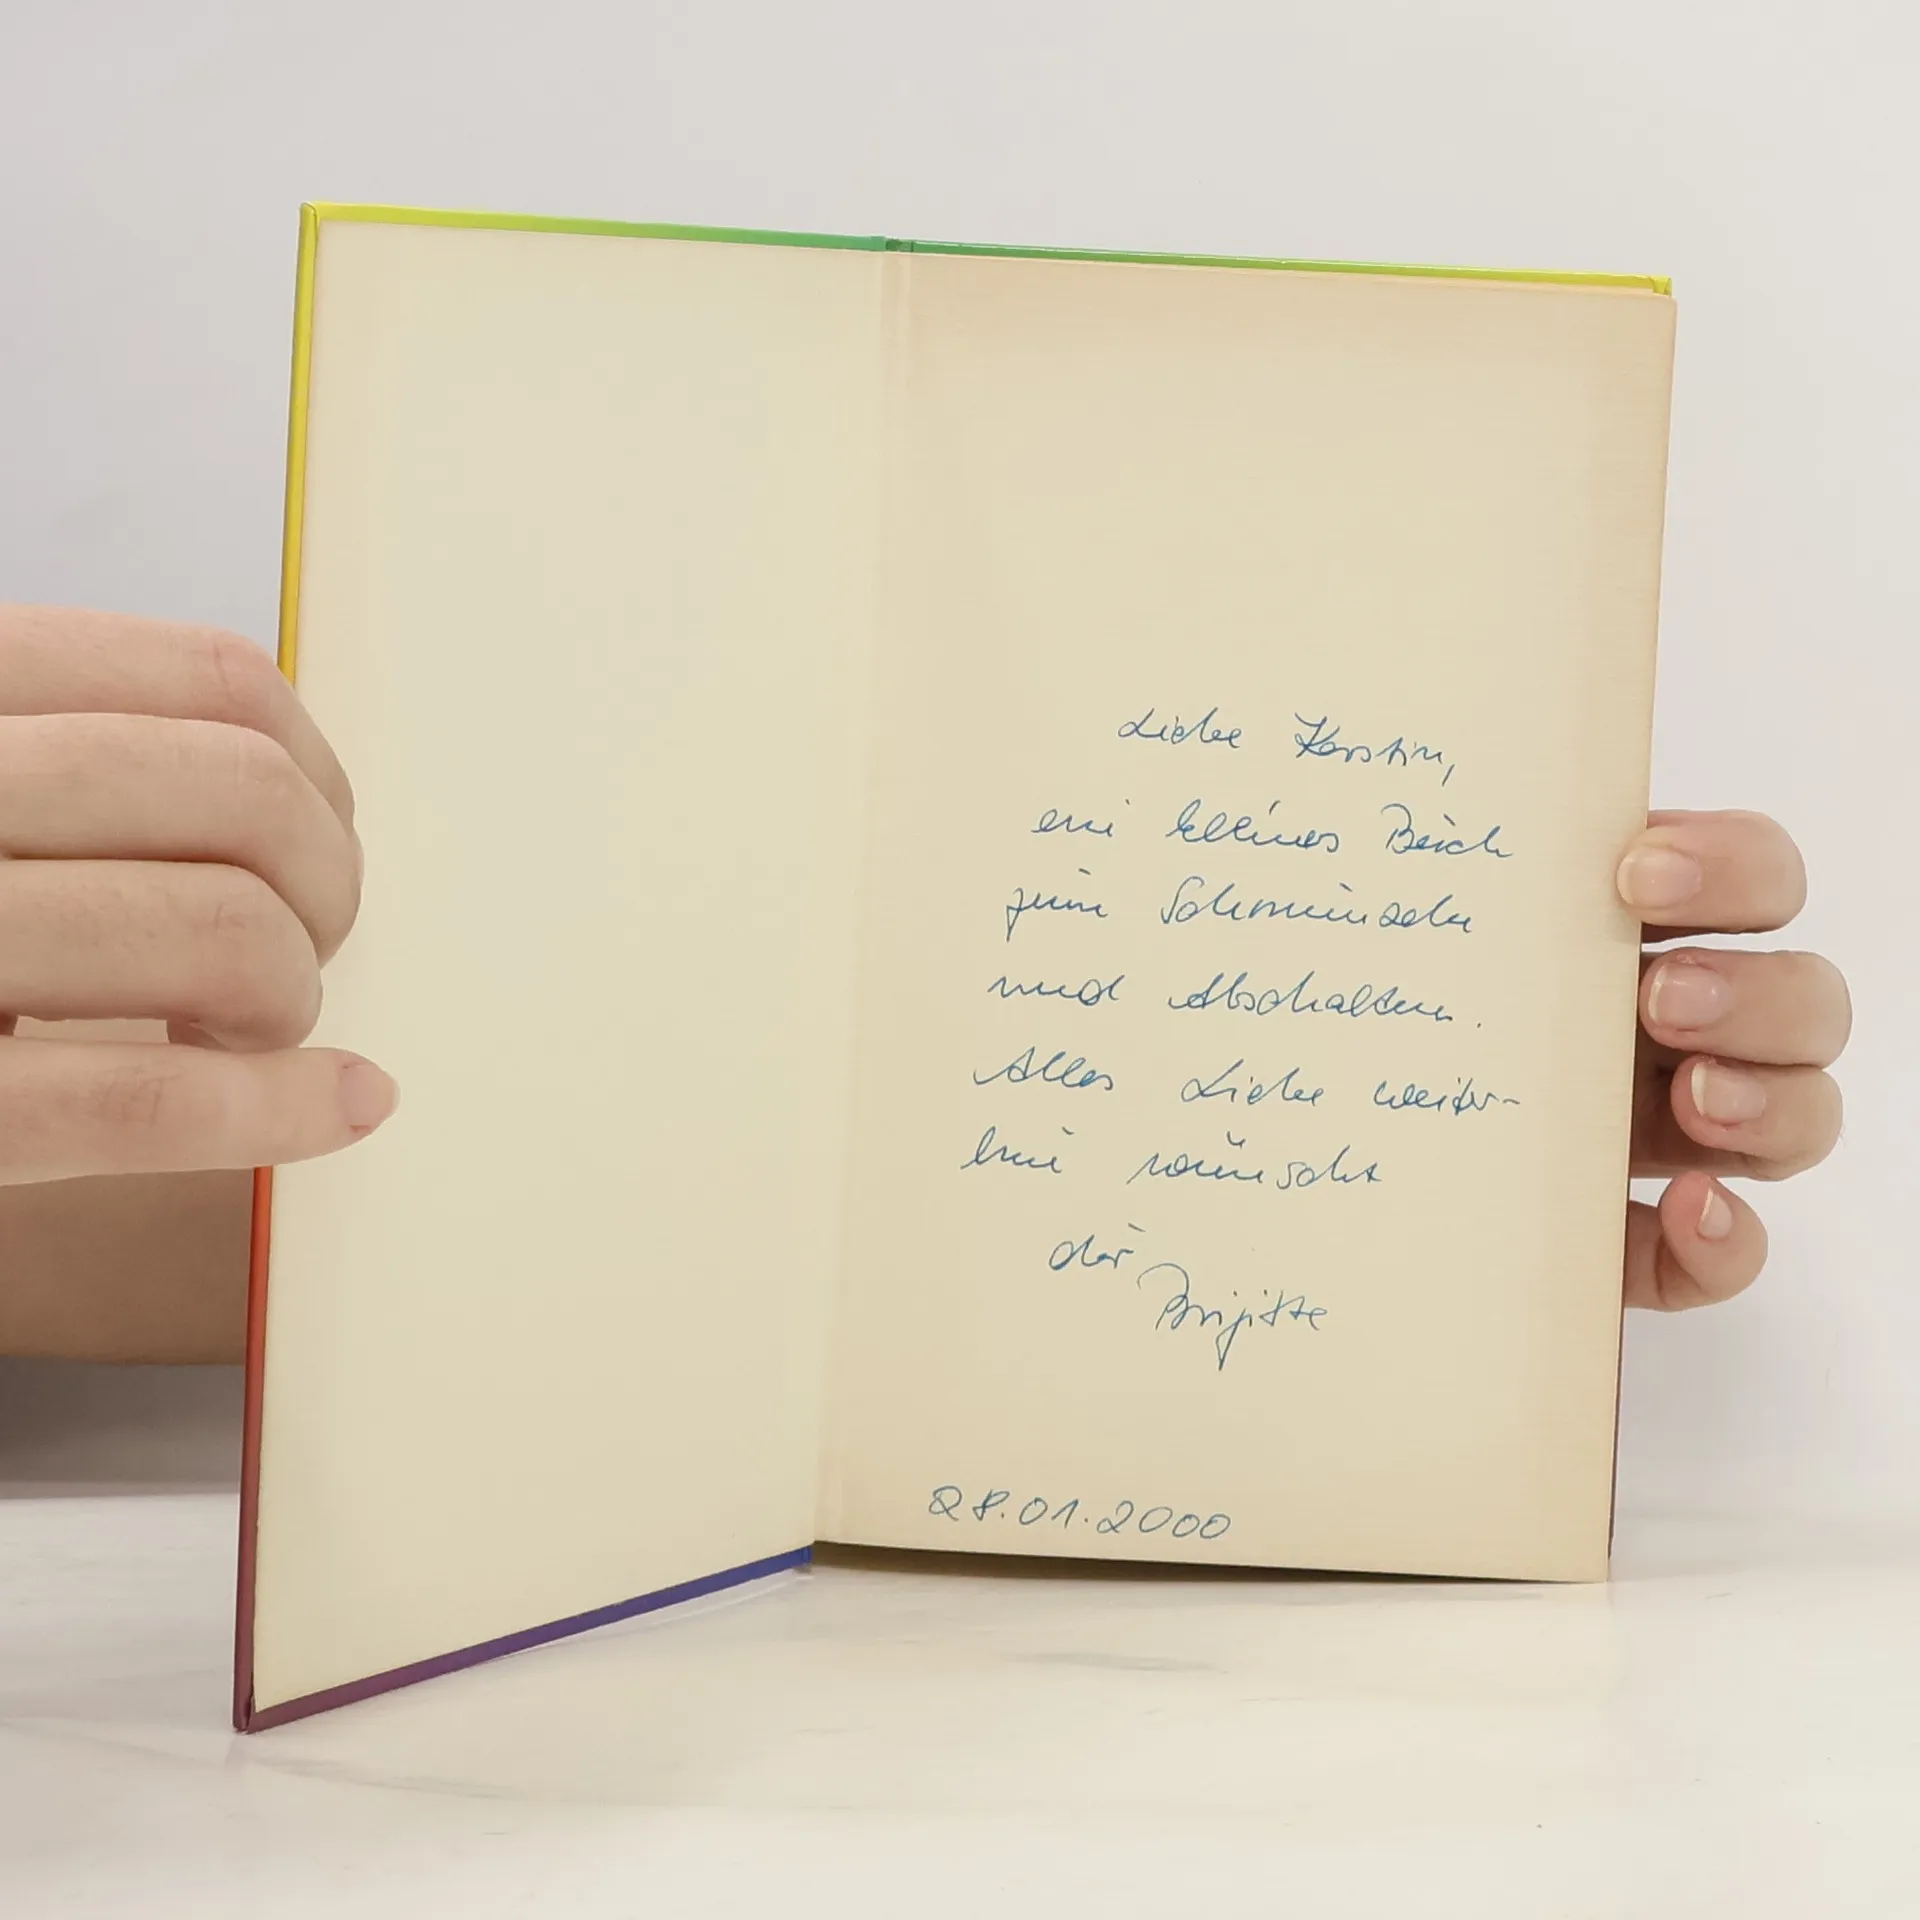 Liebe Kerstin,
ein kleines Buch
zum Schmunzeln
und Abschalten.
Alles Liebe weiter-
hin wünscht
dir
Brigitte
28.01.2000